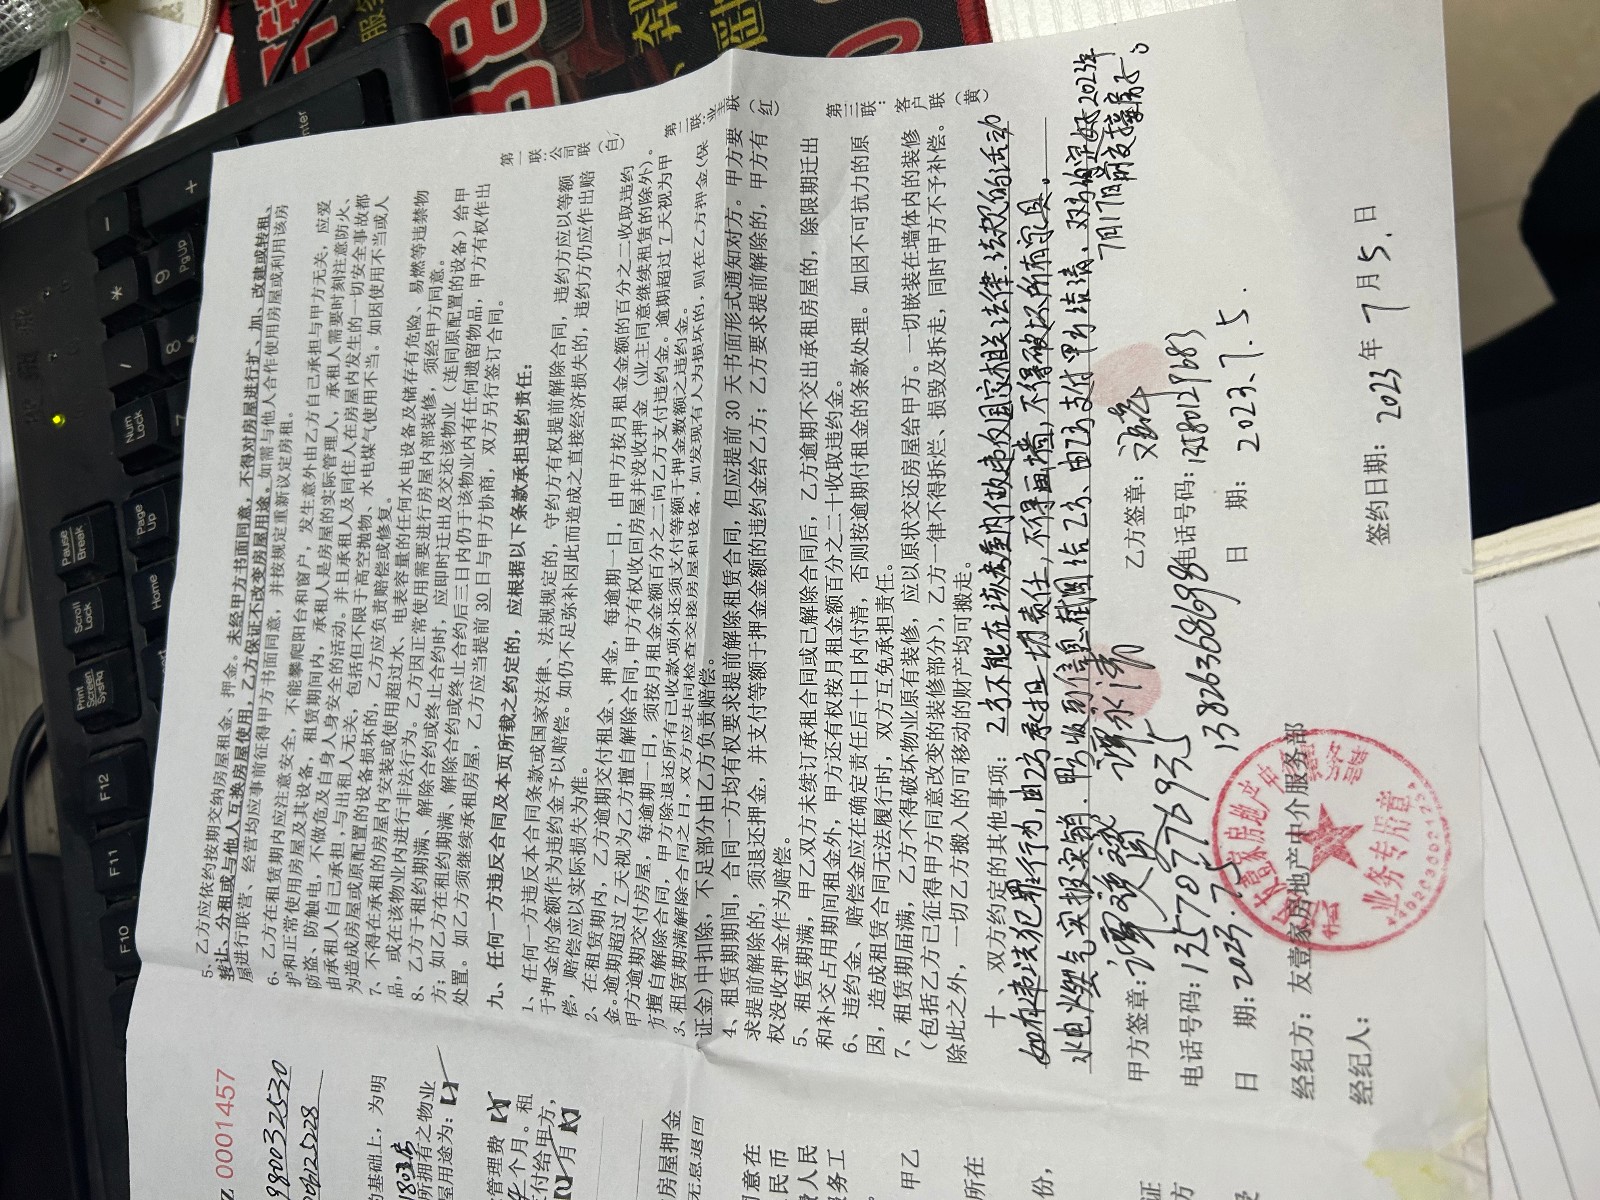 5、乙方应依约按期交纳房屋租金、押金。未经甲方书面同意，不得对房屋进行扩、加、改建或转租、
转让、分租或与他人互换房屋使用，乙方保证不改变房屋用途。如需与他人合作使用房屋或利用该房
屋进行联营、经营均应事前征得甲方书面同意，并按规定重新议定房租。
6、乙方在租赁期内应注意安全，不能攀爬阳台和窗户，发生意外由乙方自己承担与甲方无关，应爱
护和正常使用房屋及其设备，租赁期间内，承租人是房屋的实际管理人，承租人需要时刻注意防火、
防盗、防触电，不做危及自身人身安全的活动。并且承租人及同住人在房屋内发生的一切安全事故都
由承租人自己承担，与出租人无关，包括但不限于高空抛物、水电煤气使用不当。如因使用不当或人
为造成房屋或原配置的设备损坏的，乙方应负责赔偿或修复。
7、不得在承租的房屋内安装或使用超过水、电表容量的任何水电设备及储存有危险、易燃等违禁物
品，或在该物业内进行非法行为。乙方因正常使用需要进行房屋内部装修，须经甲方同意。
8、乙方于租约期满、解除合约或终止合约时，应即时迁出及交还该物业（连同原配置的设备）给甲
方；如乙方在租约期满、解除合约或终止合约后三日内仍于该物业内有任何遗留物品，甲方有权作出
处置。如乙方须继续承租房屋，乙方应当提前 30 日与甲方协商，双方另行签订合同。
九、任何一方违反合同及本页所载之约定的，应根据以下条款承担违约责任：
1、任何一方违反本合同条款或国家法律、法规规定的，守约方有权提前解除合同，违约方应以等额
于押金的金额作为违约金予以赔偿。如仍不足弥补因此而造成之直接经济损失的，违约方仍应作出赔
偿，赔偿应以实际损失为准。
2、在租赁期内，乙方逾期交付租金、押金，每逾期一日，由甲方按月租金金额的百分之二收取违约
金。逾期超过 7 天视为乙方擅自解除合同，甲方有权收回房屋并没收押金（业主同意继续租赁的除外）。
甲方逾期交付房屋，每逾期一日，须按月租金金额百分之二向乙方支付违约金。逾期超过 7 天视为甲
方擅自解除合同，甲方除退还所有已收款项外还须支付等额于押金数额之违约金。
3、租赁期满解除合同之日，双方应共同检查交接房屋和设备，如发现有人为损坏的，则在乙方押金（保
证金）中扣除，不足部分由乙方负责赔偿。
4、租赁期期间，合同一方均有权要求提前解除租赁合同，但应提前 30 天书面形式通知对方。甲方要
求提前解除的，须退还押金，并支付等额于押金金额的违约金给乙方；乙方要求提前解除的，甲方有
权没收押金作为赔偿。
5、租赁期满，甲乙双方未续订承租合同或已解除合同后，乙方逾期不交出承租房屋的，除限期迁出
和补交占用期间租金外，甲方还有权按月租金额百分之二十收取违约金。
6、违约金、赔偿金应在确定责任后十日内付清，否则按逾期付租金的条款处理。如因不可抗力的原
因，造成租赁合同无法履行时，双方互免承担责任。
7、租赁期届满，乙方不得破坏物业原有装修，应以原状交还房屋给甲方。一切嵌装在墙体内的装修
（包括乙方已征得甲方同意改变的装修部分），乙方一律不得拆烂、损毁及拆走，同时甲方不予补偿。
除此之外，一切乙方搬入的可移动的财产均可搬走。
十、双方约定的其他事项：乙方不能在该房屋内做违反国家相关法律.法规的活动
如有违法犯罪行为,由乙方承担一切责任,不得画墙,不得破坏所有家具。
水电燃气实报实销.甲方收到信息截图给乙方、由乙方支付甲方结清、双方约定好2023年
7月7日前交接房子。
甲方签章：
乙方签章：
电话号码：13570776935
13826368698
电话号码：
日 期：2023.7.5
日 期：2023.7.5.
经纪方：友壹家房地产中介服务部
经纪人：
签约日期：2023 年 7 月 5. 日
业务专用章
第一联：公司联（白）
第二联：业主联（红）
第三联：客户联（黄）
0001457
980032530
的基础上，为明
1803房
所拥有之物业
屋用途为：
管理费
个月。租
付给甲方，
月
房屋押金
无息退回
意在
民币
人民
务工
甲乙
所在
份，
Num
Lock
PgUp
Page
Up
Home
Pause
Break
Scroll
Lock
Print
Screen
SysRq
F12
F11
F10